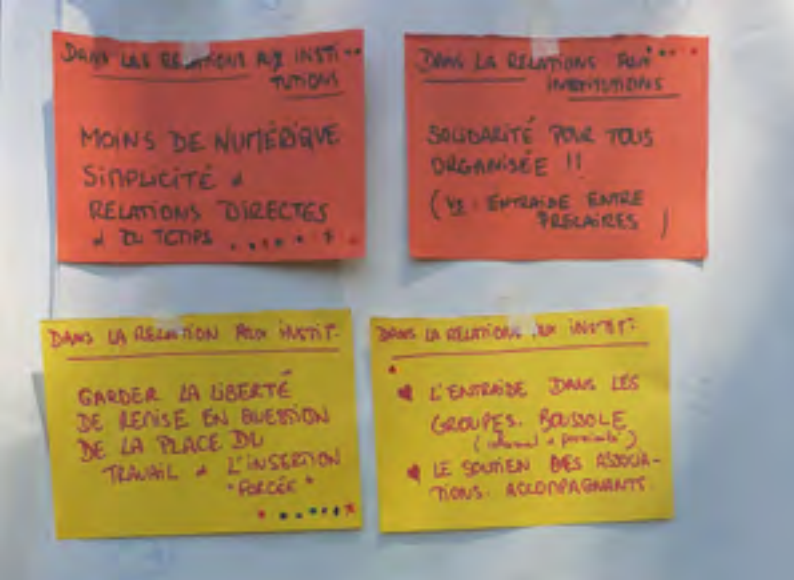 DANS LES RELATIONS AUX INSTI-
TUTIONS
MOINS DE NUMÉRIQUE
SIMPLICITÉ &
RELATIONS DIRECTES
& DU TEMPS
DANS LA RELATIONS AUX
INSTITUTIONS
SOLIDARITÉ POUR TOUS
ORGANISÉE !!
( VS ENTRAIDE ENTRE
PRÉCAIRES )
DANS LA RELATION AUX INSTIT.
GARDER LA LIBERTÉ
DE REMISE EN QUESTION
DE LA PLACE DU
TRAVAIL & L'INSERTION
"FORCÉE"
DANS LA RELATIONS AUX INSTIT:
L'ENTRAIDE DANS LES
GROUPES. BOUSSOLE
( informel & proximité )
LE SOUTIEN DES ASSOCIA-
TIONS. ACCOMPAGNANTS.